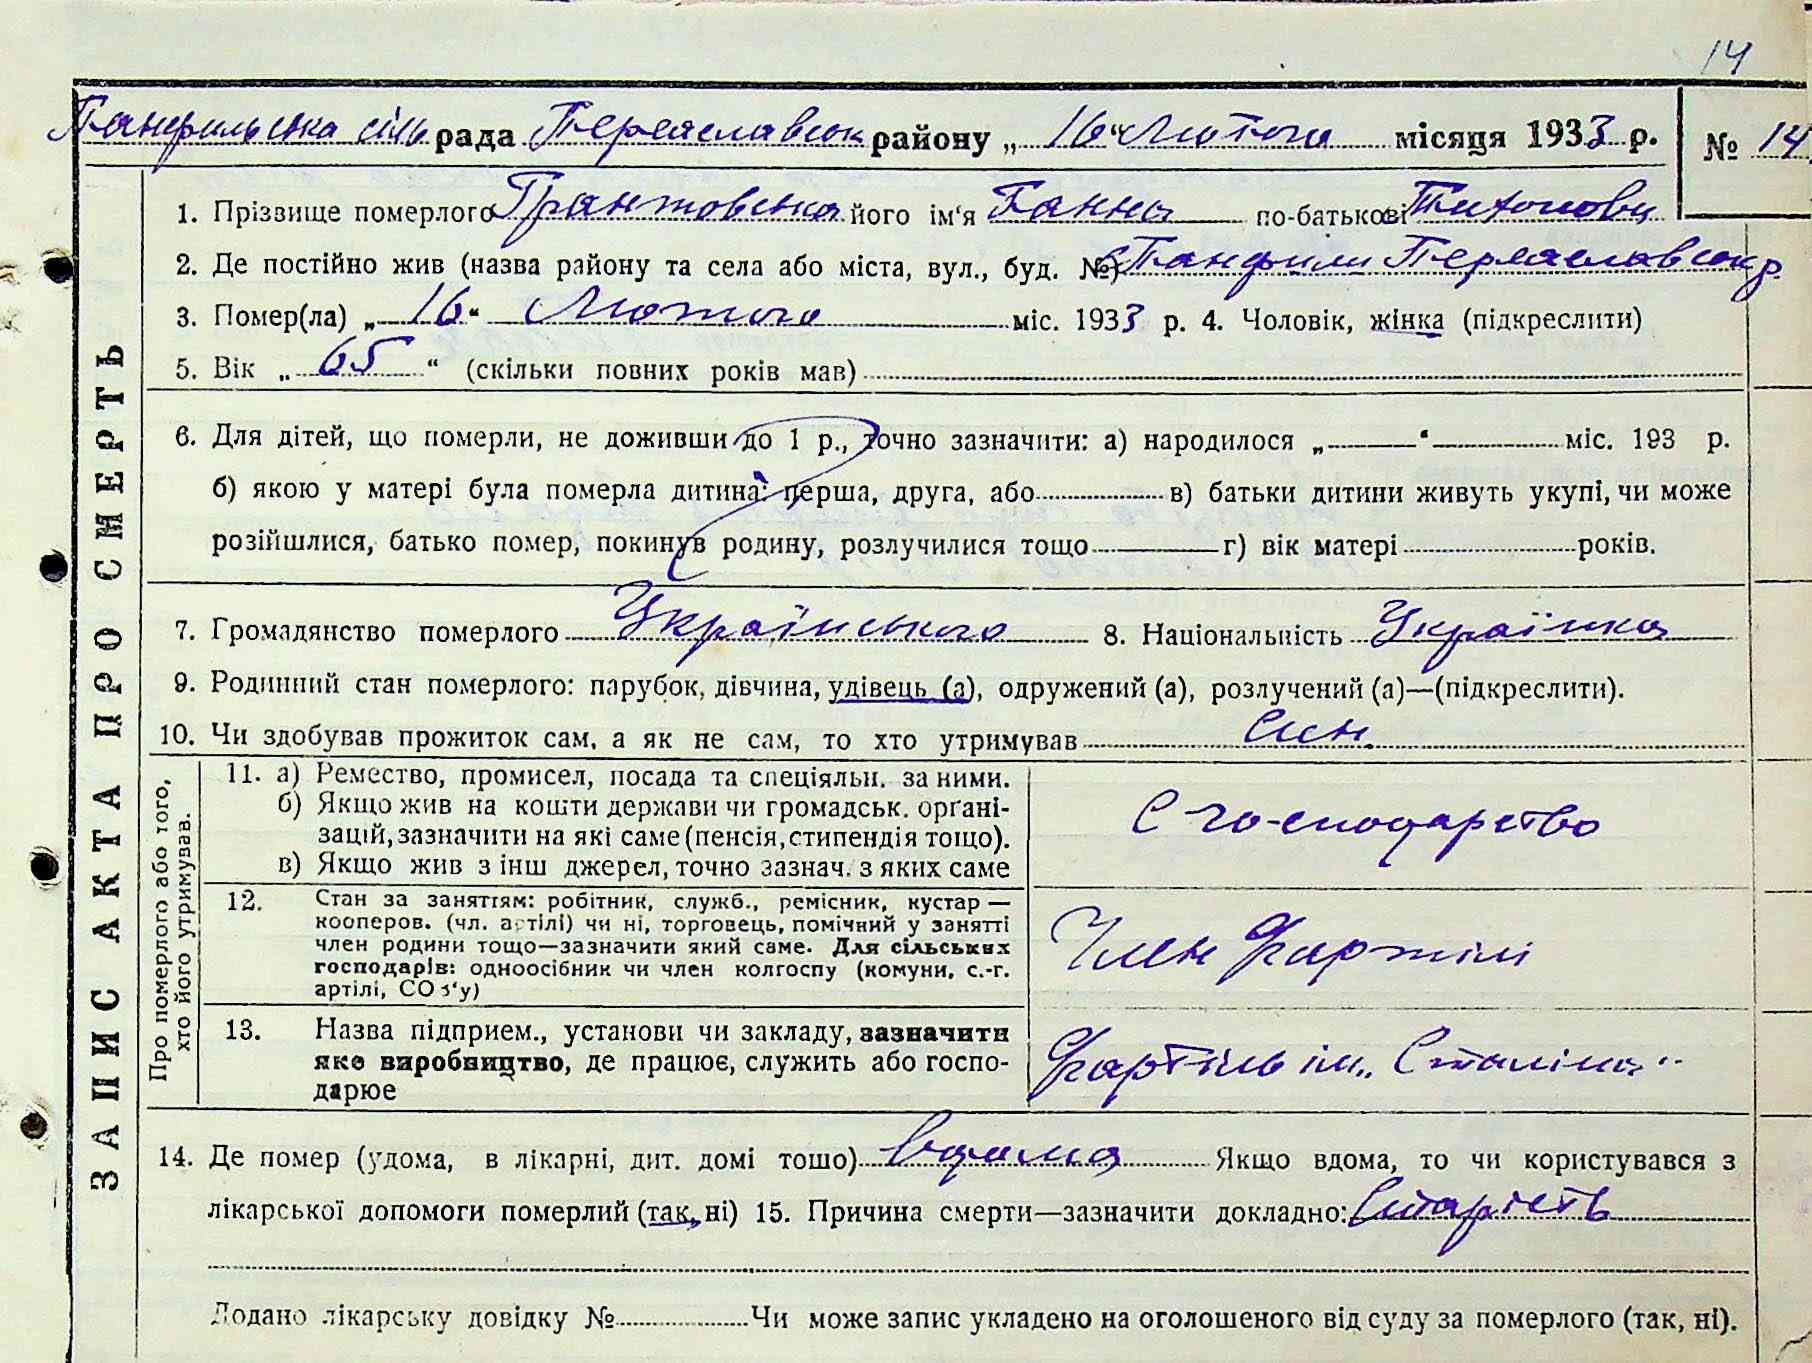 14
Панфильська сіль рада Переяславськ району „ 16 “ Лютого місяця 1933 р. № 14
ЗАПИС АКТА ПРО СМЕРТЬ
1. Прізвище померлого його ім‘я Ганна по-батькові Тихоновн
2. Де постійно жив (назва району та села або міста, вул., буд. №) Панфили Переяславськ р.
3. Помер(ла) „ 16 “ Лютого міс. 1933 р. 4. Чоловік, жінка (підкреслити)
5. Вік „ 65 “ (скільки повних років мав)
6. Для дітей, що померли, не доживши до 1 р., точно зазначити: а) народилося „ “ міс. 193 р.
б) якою у матері була померла дитина: перша, друга, або в) батьки дитини живуть укупі, чи може
розійшлися, батько помер, покинув родину, розлучилися тощо г) вік матері років.
7. Громадянство померлого Українського 8. Національність Українка
9. Родинний стан померлого: парубок, дівчина, удівець (а), одружений (а), розлучений (а)—(підкреслити).
10. Чи здобував прожиток сам, а як не сам, то хто утримував Син.
Про померлого або того,
хто його утримував.
11. а) Ремество, промисел, посада та спеціяльн. за ними.
б) Якщо жив на кошти держави чи громадськ. орґані-
зацій, зазначити на які саме (пенсія, стипендія тощо).
в) Якщо жив з інш джерел, точно зазнач. з яких саме
С господарство
12. Стан за заняттям: робітник, служб., ремісник, кустар —
кооперов. (чл. артілі) чи ні, торговець, помічний у занятті
член родини тощо—зазначити який саме. Для сільських
господарів: одноосібник чи член колгоспу (комуни, с.-г.
артілі, СОЗ‘у)
Член
13. Назва підприєм., установи чи закладу, зазначити
яке виробництво, де працює, служить або госпо-
дарює
ім. „Сталіна“
14. Де помер (удома, в лікарні, дит. домі тощо) вдома Якщо вдома, то чи користувався з
лікарської допомоги померлий (так, ні) 15. Причина смерти—зазначити докладно: Старість
Додано лікарську довідку № Чи може запис укладено на оголошеного від суду за померлого (так, ні).